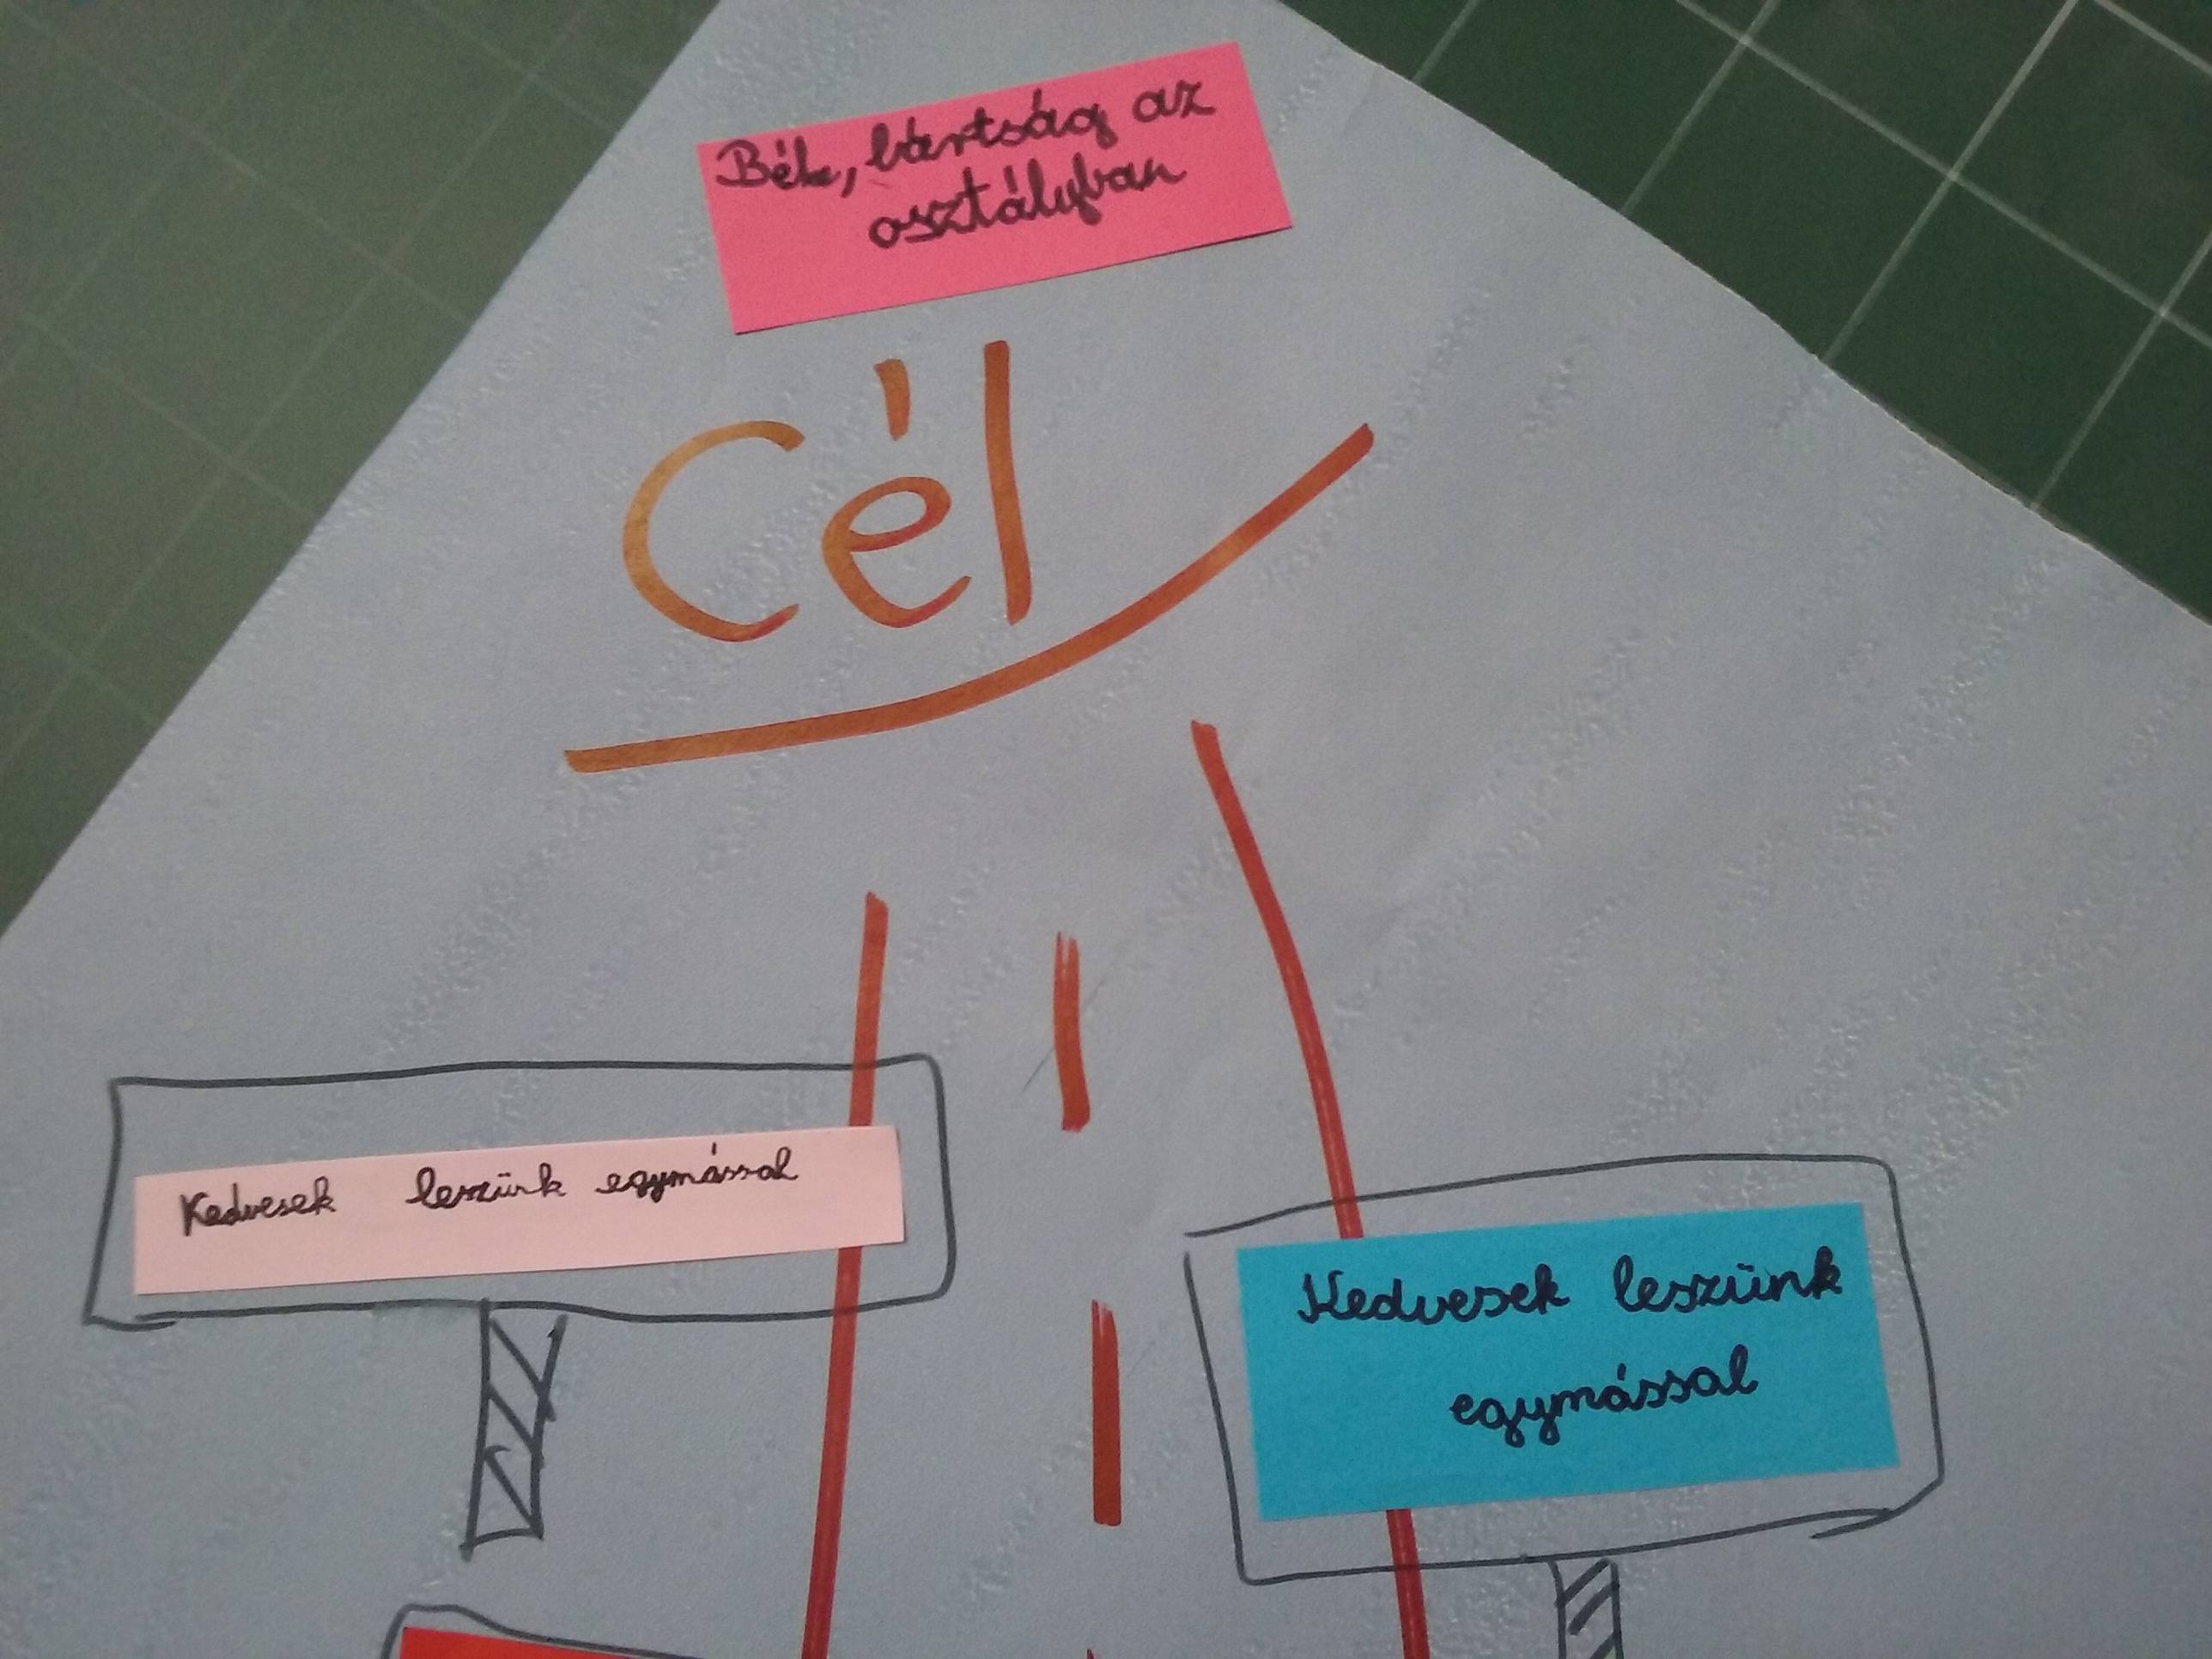 Béke, bártság az
osztályban
Cél
Kedvesek leszünk egymással
Kedvesek leszünk
egymással